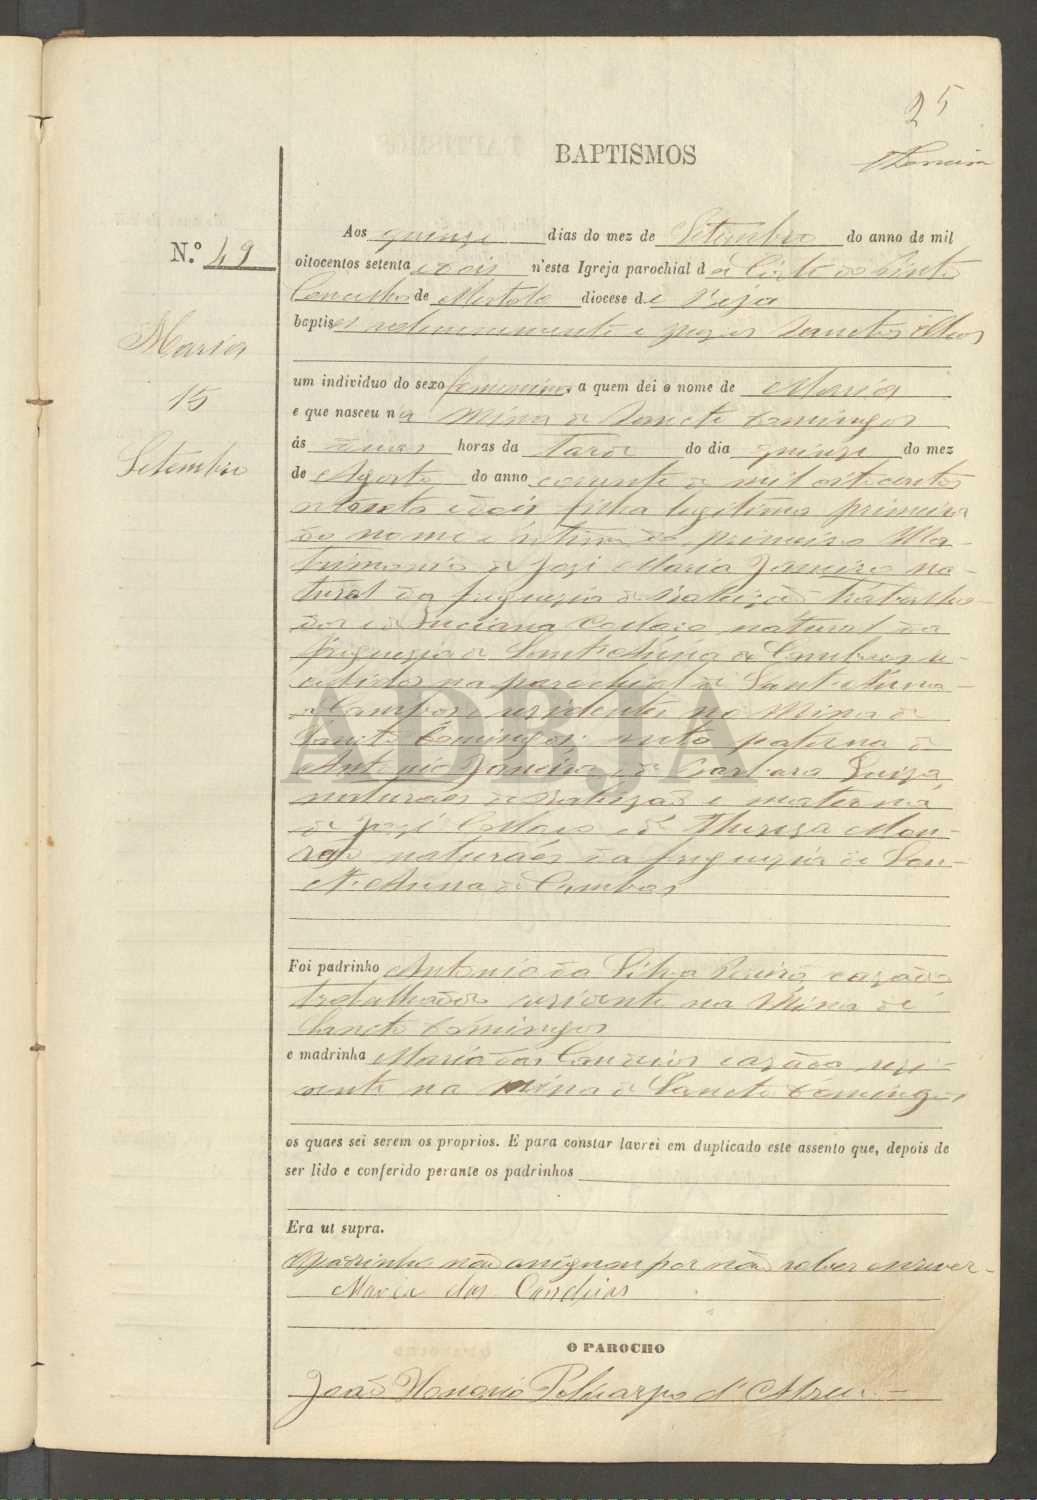 25
BAPTISMOS
N.º 49
Maria
15
Setembro
Aos quinze dias do mez de Setembro do anno de mil
oitocentos setenta e dois n'esta Igreja parochial d a Côrte do Pinto
Concelho de Mertola diocese de Beja
baptisei solemnemente e puz os Sanctos Oleos
um individuo do sexo femenino, a quem dei o nome de Maria
e que nasceu na Mina de Sancto Domingos
ás duas horas da Tarde do dia quinze do mez
de Agosto do anno corrente de mil oitocentos
setenta e dois filha legitima primeira
do nome e do primeiro Ma-
trimonio de José Maria Janeiro na-
tural da freguezia de trabalha-
dor e de Luciana Collaço natural da
freguezia de Sant'Anna de Cambas re-
cebidos na parochial de Sant'Anna
de Cambas e residentes na Mina de
Sancto Domingos; neta paterna de
Antonio Janeiro, e de Barbara Luiza
naturaes de e materna
de José Collaço e de Thereza Mon-
naturaes da freguezia de San-
t'Anna de Cambas
Foi padrinho Antonio da Silva cazado
trabalhador rezidente na Mina de
Sancto Domingos
e madrinha Maria das Candeias cazada rezi-
dente na Mina de Sancto Domingos
os quaes sei serem os proprios. E para constar lavrei em duplicado este assento que, depois de
ser lido e conferido perante os padrinhos
Era ut supra.
O padrinho não assignou por não saber escrever
Maria das Candeias
O PAROCHO
João Honorio Policarpo d'Abreu
ADBJA